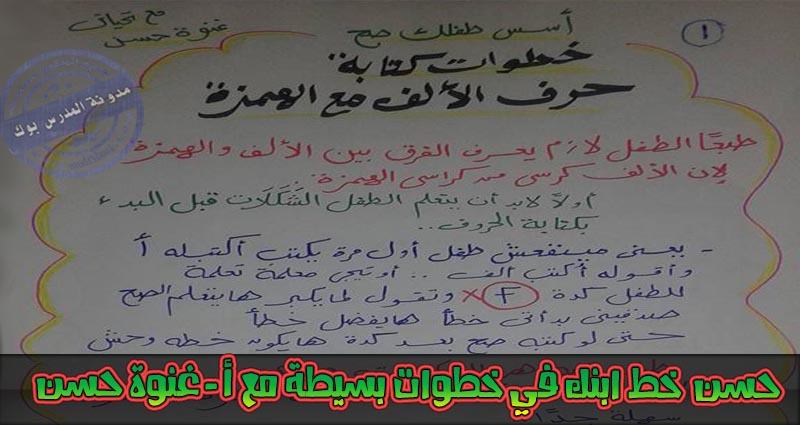 مع تحياتى
غنوة حسن
١
أسس طفلك صح
خطوات كتابة
حرف الألف مع الهمزة
طبعًا الطفل لازم يعرف الفرق بين الألف والهمزة
لإن الألف كرسى من كراسى الهمزة
أولاً لابد أن يتعلم الطفل الشَّكَلَات قبل البدء
بكتابة الحروف..
- يعنى مينفعش طفل أول مرة يكتب أكتبله أ
وأقوله أكتب ألف .. أو تيجى معلمة تعلمة
للطفل كدة X وتقول لما يكبر هايتعلم الصح
بدأتى خطأ هايفضل خطأ
حتى لو كتبه صح بعد كدة هايكون خطه وحش
سهلة جدًا
مدونة المدرس بوك
حسن خط ابنك في خطوات بسيطة مع أ-غنوة حسن